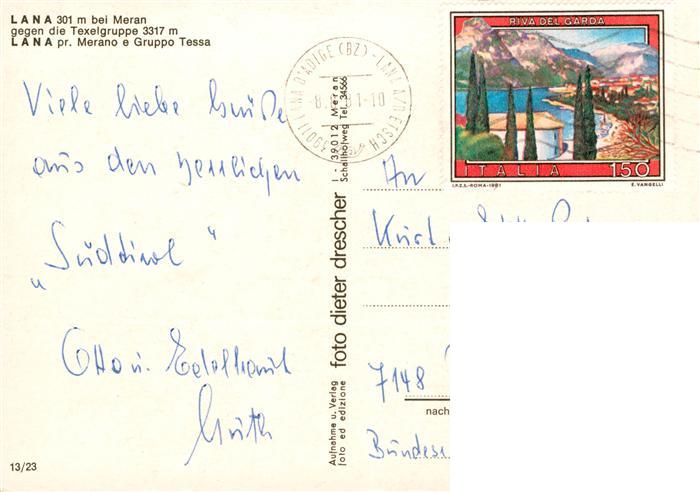 LANA 301 m bei Meran
gegen die Texelgruppe 3317 m
LANA pr. Merano e Gruppo Tessa
Viele liebe Grüße
aus den herrlichen
„Südtirol"
Otto u. Edeltraut
13/23
Aufnahme u. Verlag
foto ed edizione
foto dieter drescher
I - 39012 Meran
Schallhofweg Tel. 34566
39011 LANA D'ADIGE (BZ) - LANA A/D ETSCH
RIVA DEL GARDA
ITALIA 150
I.P.Z.S.-ROMA-1981 E. VANGELLI
An
Kurt
7148
nach
Bundes